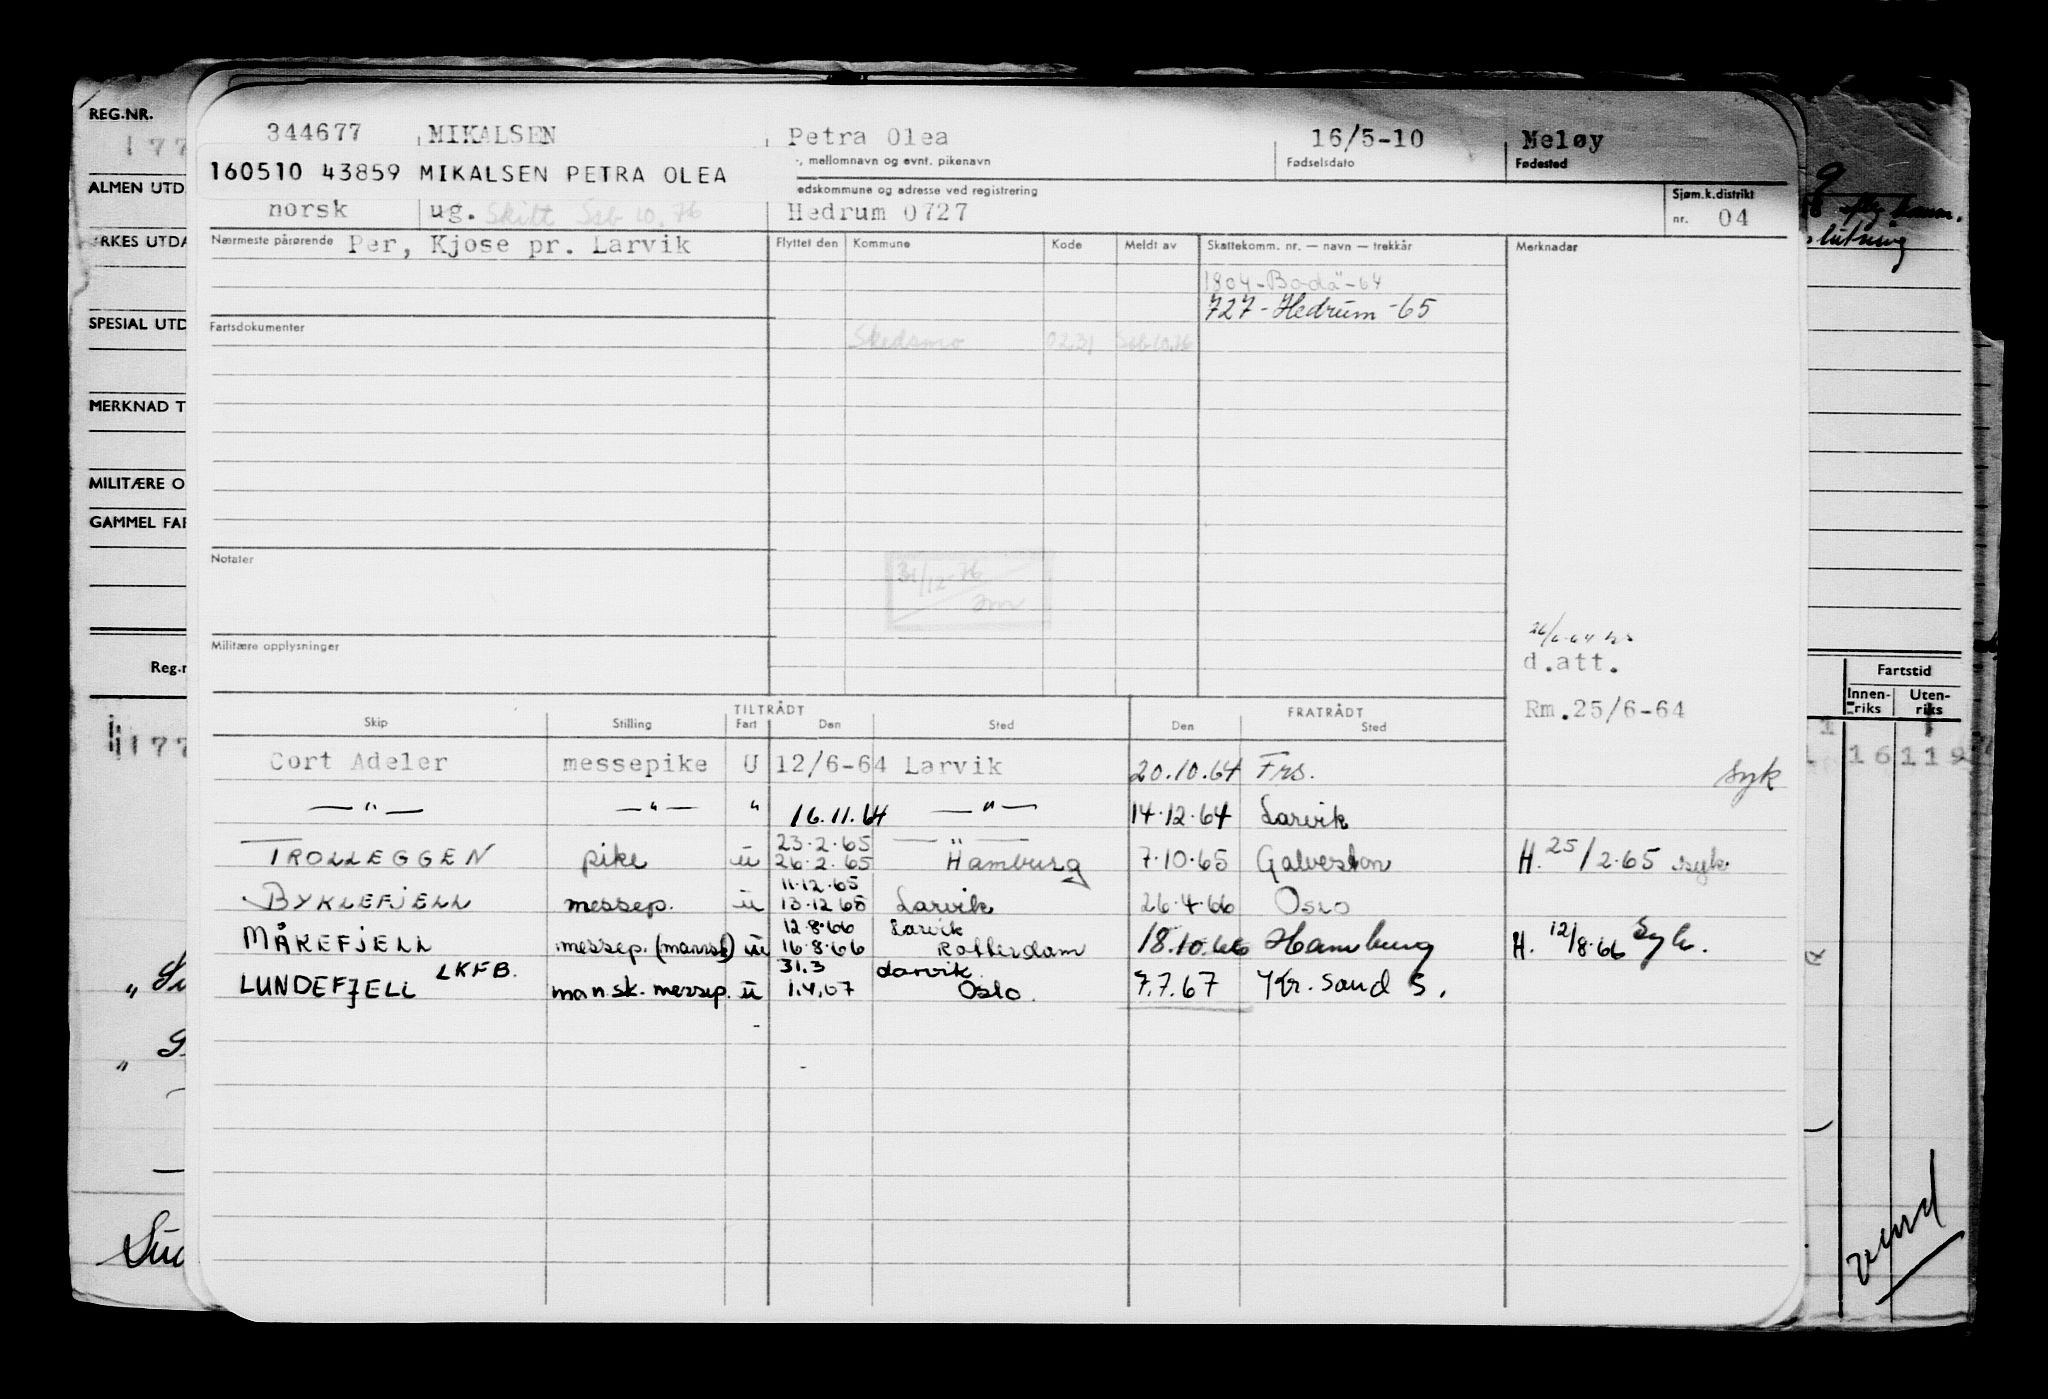 REG.NR.
344677 MIKALSEN Petra Olea 16/5-10 Meløy
177
, mellomnavn og evnt. pikenavn Fødselsdato Fødested
160510 43859 MIKALSEN PETRA OLEA
ALMEN UTD
edskommune og adresse ved registrering Sjøm.k.distrikt
norsk ug. Skilt Ssb 10.76 Hedrum 0727 nr. 04
RKES UTDA
Nærmeste pårørende Per, Kjose pr. Larvik Flyttet den Kommune Kode Meldt av Skattekomm. nr. — navn — trekkår Merknader
1804-Bodø-64
727-Hedrum-65
SPESIAL UTD
Fartsdokumenter
Skedsmo 0231 Ssb 10.76
MERKNAD T
MILITÆRE O
GAMMEL FAR
Notater
31/12 76
Militære opplysninger
26/6-64
d.att.
Reg.n Fartstid
Innenriks Utenriks
Rm.25/6-64
TILTRÅDT FRATRÅDT
Skip Stilling Fart Den Sted Den Sted
177
Cort Adeler messepike U 12/6-64 Larvik 20.10.64 Frs. syk
16 119
—"— —"— " 16.11.64 —"— 14.12.64 Larvik
23.2.65 —"—
TROLLEGGEN pike u 26.2.65 Hamburg 7.10.65 Galveston H. 25/2.65 syk
11.12.65
BYKLEFJELL messep. u 13.12 65 Larvik 26.4.66 Oslo
12.8.66 Larvik
MÅKEFJELL messep. (mannsk) u 16.8.66 Rotterdam 18.10.66 Hamburg H. 12/8.66 Syk.
31.3 Larvik
LUNDEFJELL LKFB. mansk. messep. u 1.4.67 Oslo. 7.7.67 Kr. sand S.
vend